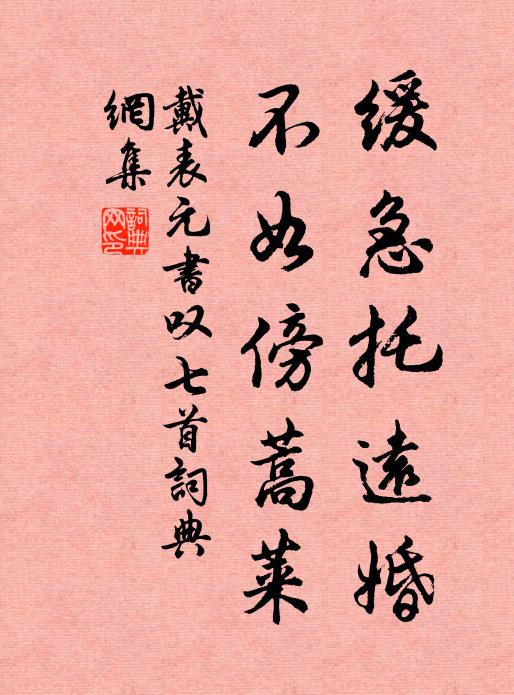 緩急托遠婚
不如傍蒿萊
戴表元書叹七首詞典
網集
詞典
网印